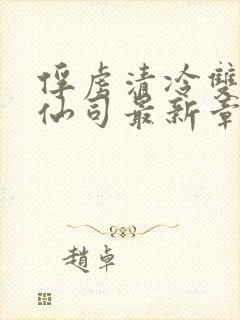 俘虏清冷雙
仙司最新章
趙卓